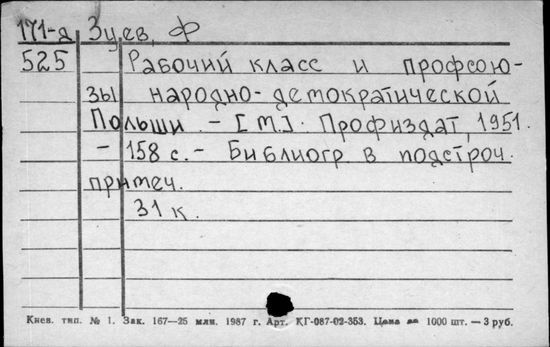 171-д Зуев, Ф
525 Рабочий класс и профсою-
зы народно-демократической
Польши. - [М.]. Профиздат, 1951.
- 158 с. - Библиогр в подстроч.
примеч.
31 к.
Киев. тип. № 1. Зак. 167—25 млн. 1987 г. Арт. КГ-087-02-353. Цена за 1000 шт. — 3 руб.